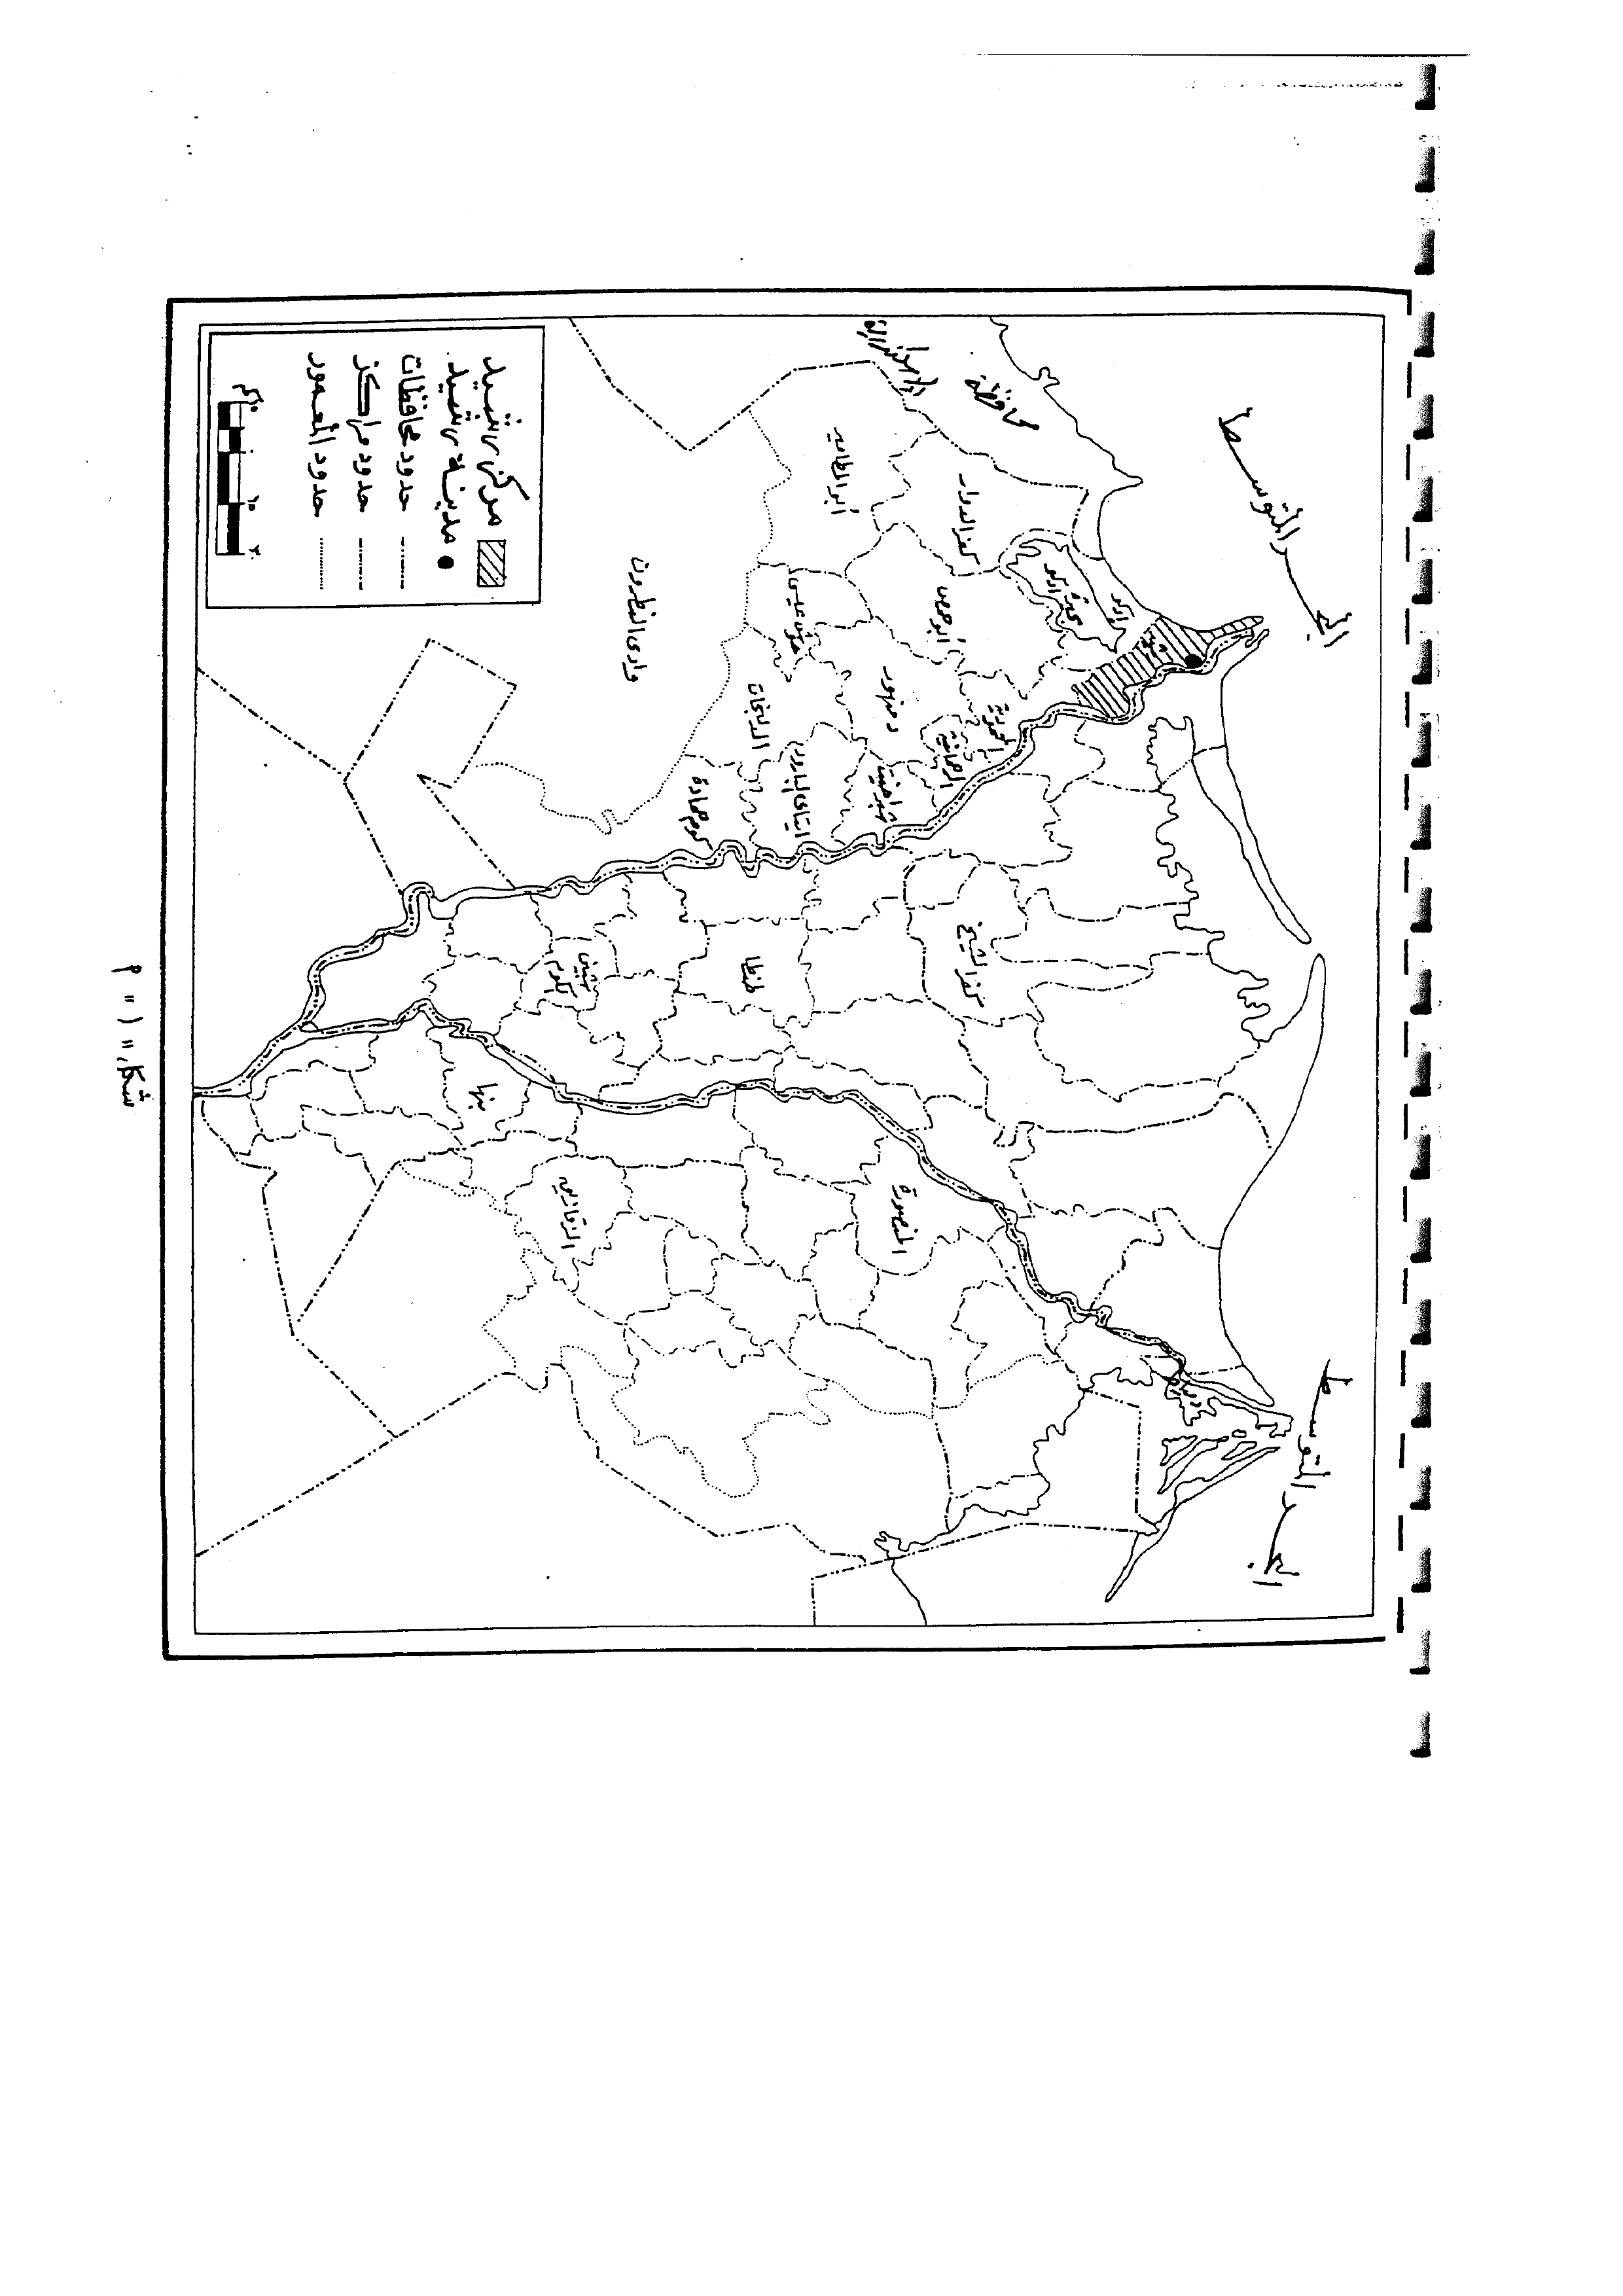 البحر المتوسط
البحر المتوسط
محافظة
الإسكندرية
إدكو
بحيرة إدكو
رشيد
كفر الدوار
أبو المطامير
أبو حمص
حوش عيسى
دمنهور
المحمودية
الرحمانية
شبراخيت
إيتاى البارود
الدلنجات
كوم حمادة
وادى النطرون
كفر الشيخ
طنطا
شبين الكوم
بنها
المنصورة
الزقازيق
دمياط
مركز رشيد
مدينة رشيد
حدود محافظات
حدود مراكز
حدود المعمور
شكل "١" م